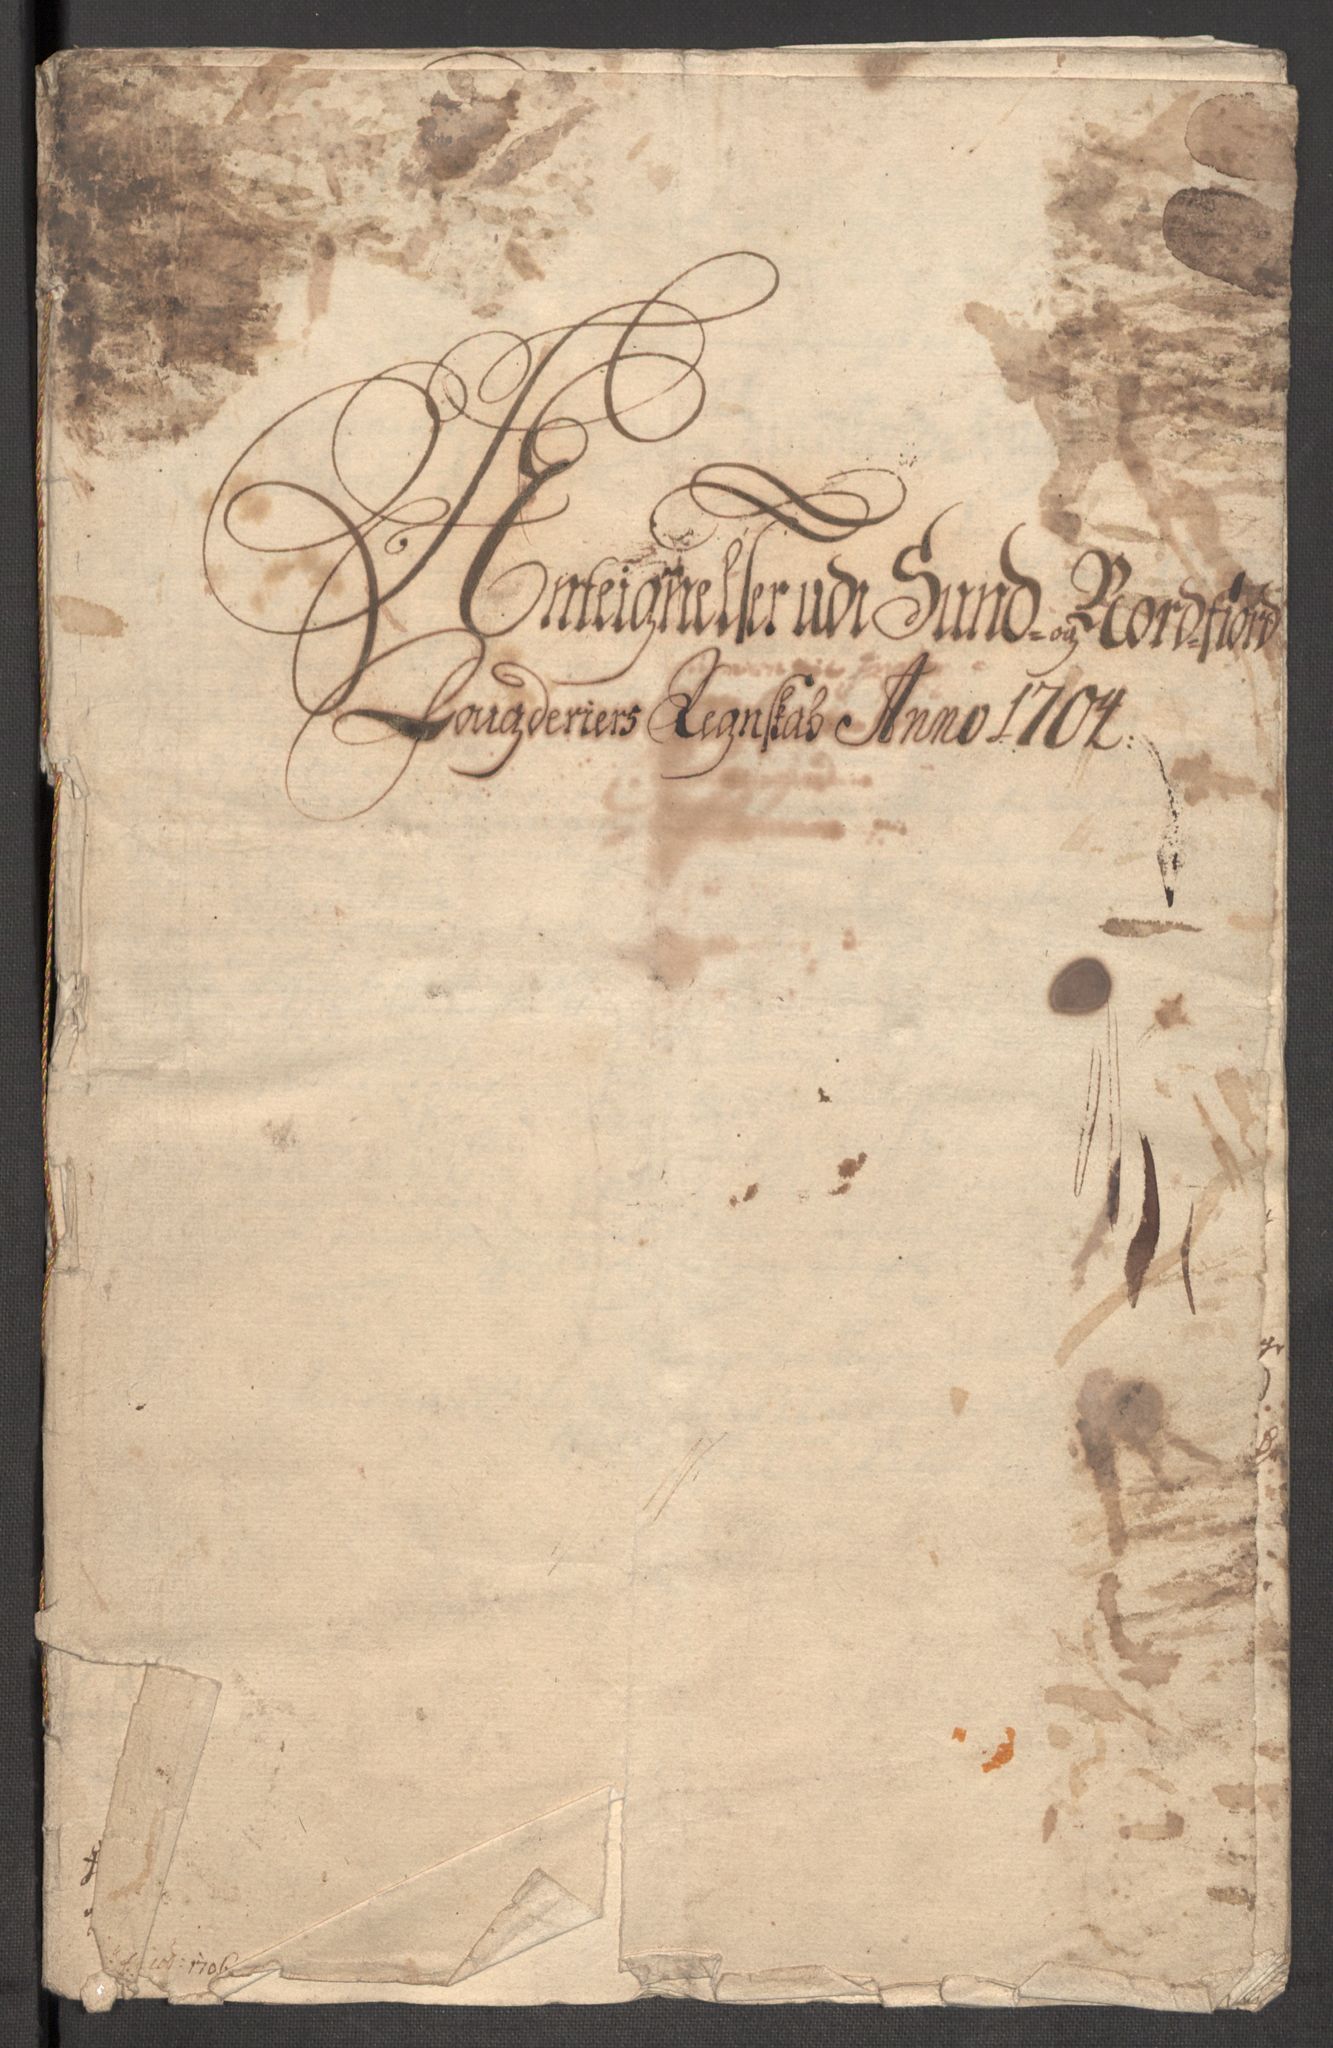 Anteignelser udi Sund- og Nordfiord
Fougderiers Regnskab Anno 1704.
1706